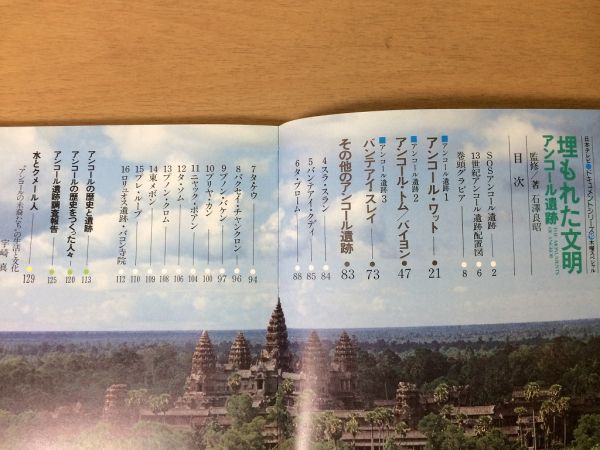 日本テレビ ドキュメントシリーズ 木曜スペシャル
埋もれた文明
アンコール遺跡
THE MONUMENTS OF ANGKOR
監修／著 石澤良昭
目次
SOSアンコール遺跡 2
13世紀アンコール遺跡配置図 6
巻頭グラビア 8
アンコール遺跡 1
アンコール・ワット 21
アンコール遺跡 2
アンコール・トム／バイヨン 47
アンコール遺跡 3
バンテアイ スレイ 73
その他のアンコール遺跡 83
4 スラ・スラン 84
5 バンテアイ・クディ 85
6 タ・プローム 88
7 タケウ 94
8 バクセイ・チャンクロン 96
9 プノン・バケン 97
10 プリヤ・カン 100
11 ニャック・ポアン 102
12 タ・ソム 104
13 プノン・クロム
14 東メボン
15 プレ・ループ 110
16 ロリュオス遺跡・バコン寺院 112
アンコールの歴史と遺跡 113
アンコールの歴史をつくった人々 120
アンコール遺跡調査報告 125
水とクメール人
“アンコールの末裔たち”の生活と文化
宇崎 真 129